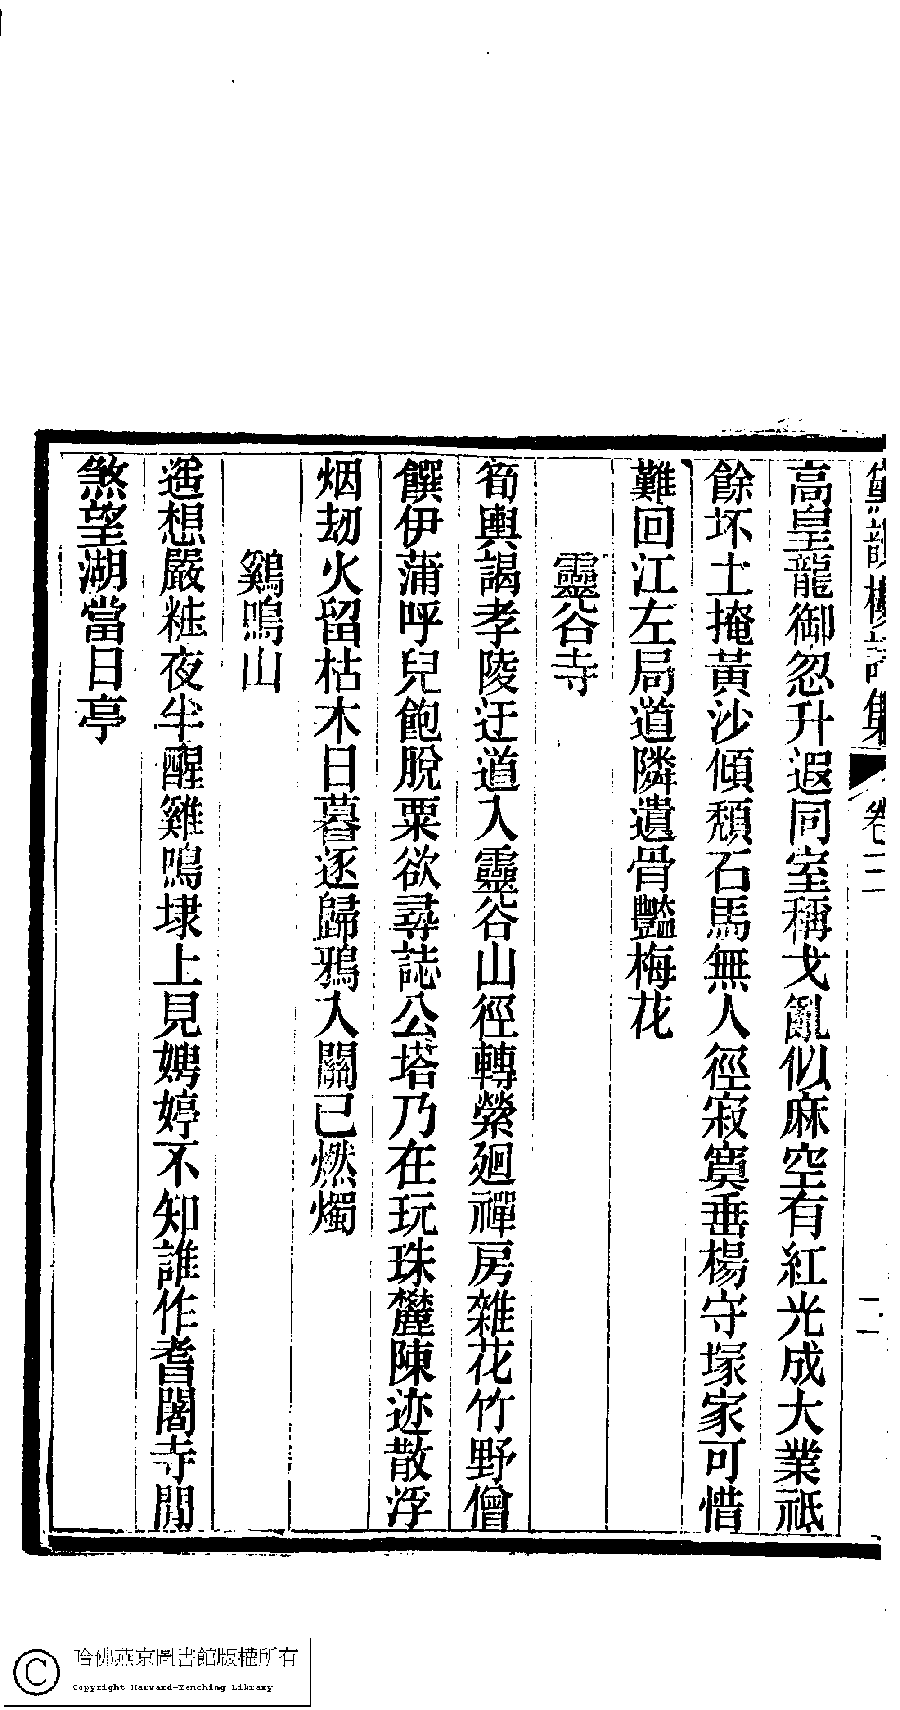 韻樓詩集 卷二 二
高皇龍御忽升遐同室稱戈亂似麻空有紅光成大業祇
餘坏土掩黃沙傾頹石馬無人徑寂寞垂楊守塚家可惜
難回江左局道隣遺骨豔梅花
靈谷寺
筍輿謁孝陵迂道入靈谷山徑轉縈廻禪房雜花竹野僧
饌伊蒲呼兒飽脫粟欲尋誌公塔乃在玩珠麓陳迹散浮
烟刼火留枯木日暮逐歸鴉入關已燃燭
鷄鳴山
遥想嚴粧夜半醒雞鳴埭上見娉婷不知誰作耆闍寺閒
煞望湖當日亭
哈佛燕京圖書館版權所有
Copyright Harvard-Yenching Library